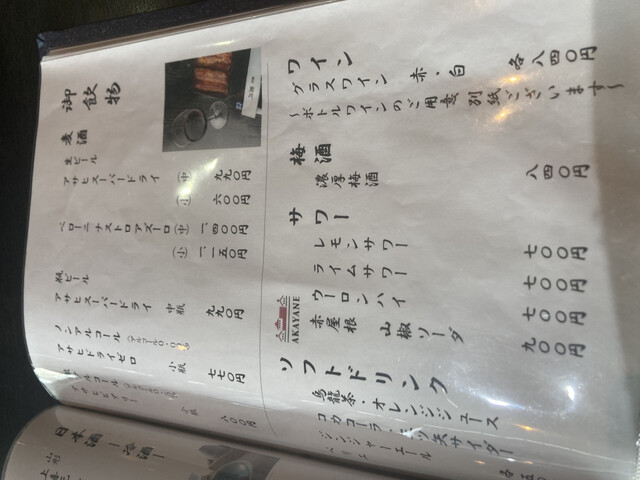 御飲物
麦酒
生ビール
アサヒスーパードライ (中) 九九〇円
(小) 六〇〇円
ペローニ ナストロアズーロ (中) 一、四〇〇円
(小) 一、一五〇円
瓶ビール
アサヒスーパードライ 中瓶 九九〇円
ノンアルコール
アサヒドライゼロ 小瓶 七七〇円
アルコール
アサヒビアリー 小瓶 六〇〇円
ワイン
グラスワイン 赤・白 各八四〇円
〜ボトルワインのご用意 別紙ございます〜
梅酒
濃厚梅酒 八四〇円
サワー
レモンサワー 七〇〇円
ライムサワー 七〇〇円
ウーロンハイ 七〇〇円
AKAYANE
赤屋根 山椒ソーダ 九〇〇円
ソフトドリンク
烏龍茶・オレンジジュース
コカコーラ・ サイダー
ジンジャーエール
各五
日本酒 ー冷酒ー